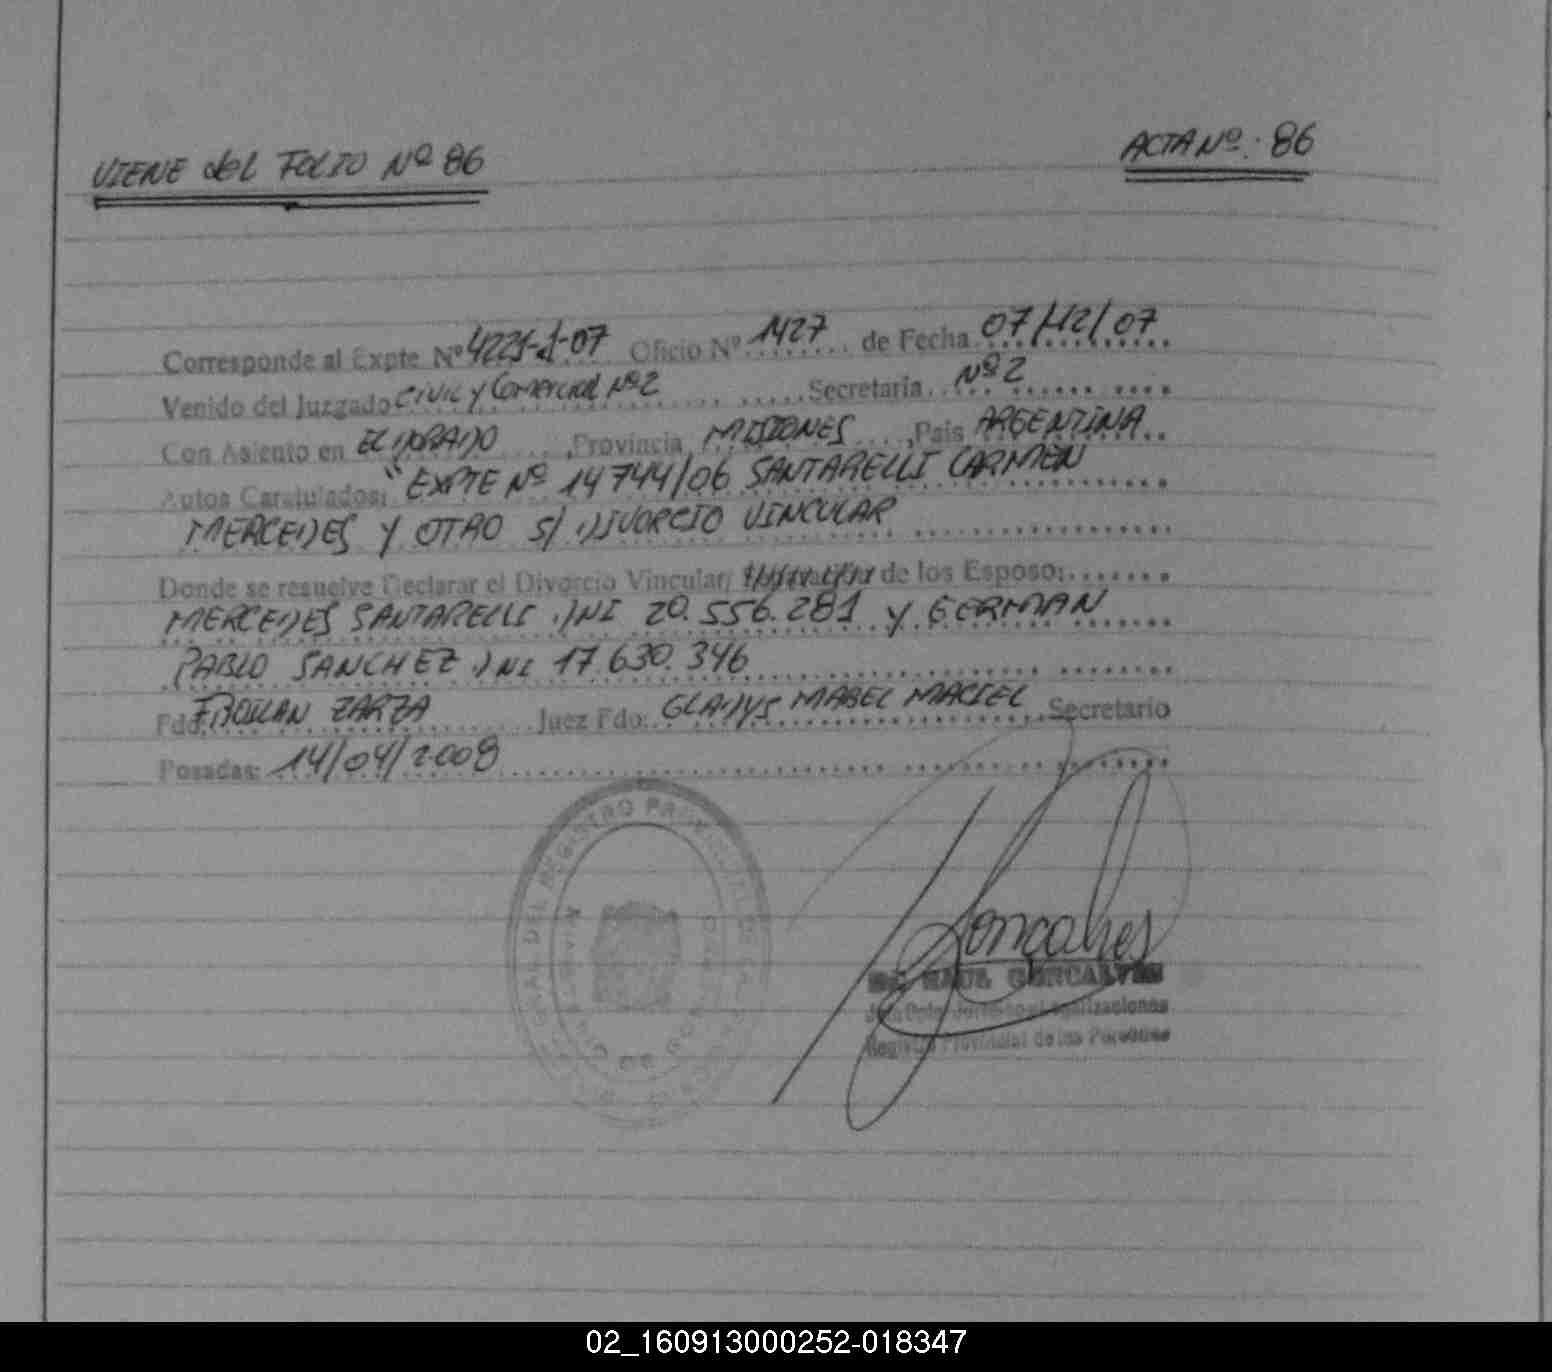 VIENE del FOLIO Nº 86
ACTA Nº: 86
Corresponde al Expte Nº 4221-J-07 Oficio Nº 1427 de Fecha 07/12/07
Venido del Juzgado Civil y Comercial Nº 2 Secretaria Nº 2
Con Asiento en ELDORADO, Provincia MISIONES, Pais ARGENTINA
Autos Caratulados: "EXPTE Nº 14744/06 SANTARELLI CARMEN
MERCEDES Y OTRO S/ DIVORCIO VINCULAR
Donde se resuelve Declarar el Divorcio Vincular/ de los Esposo:
MERCEDES SANTARELLI DNI 20.556.281 y GERMAN
PABLO SANCHEZ DNI 17.630.346
Fdo: FROILAN ZARZA Juez Fdo: GLADYS MABEL MACIEL Secretario
Posadas: 14/04/2008
Goncalves
Dr. RAUL GONCALVES
Registro Provincial de las Personas
02_160913000252-018347